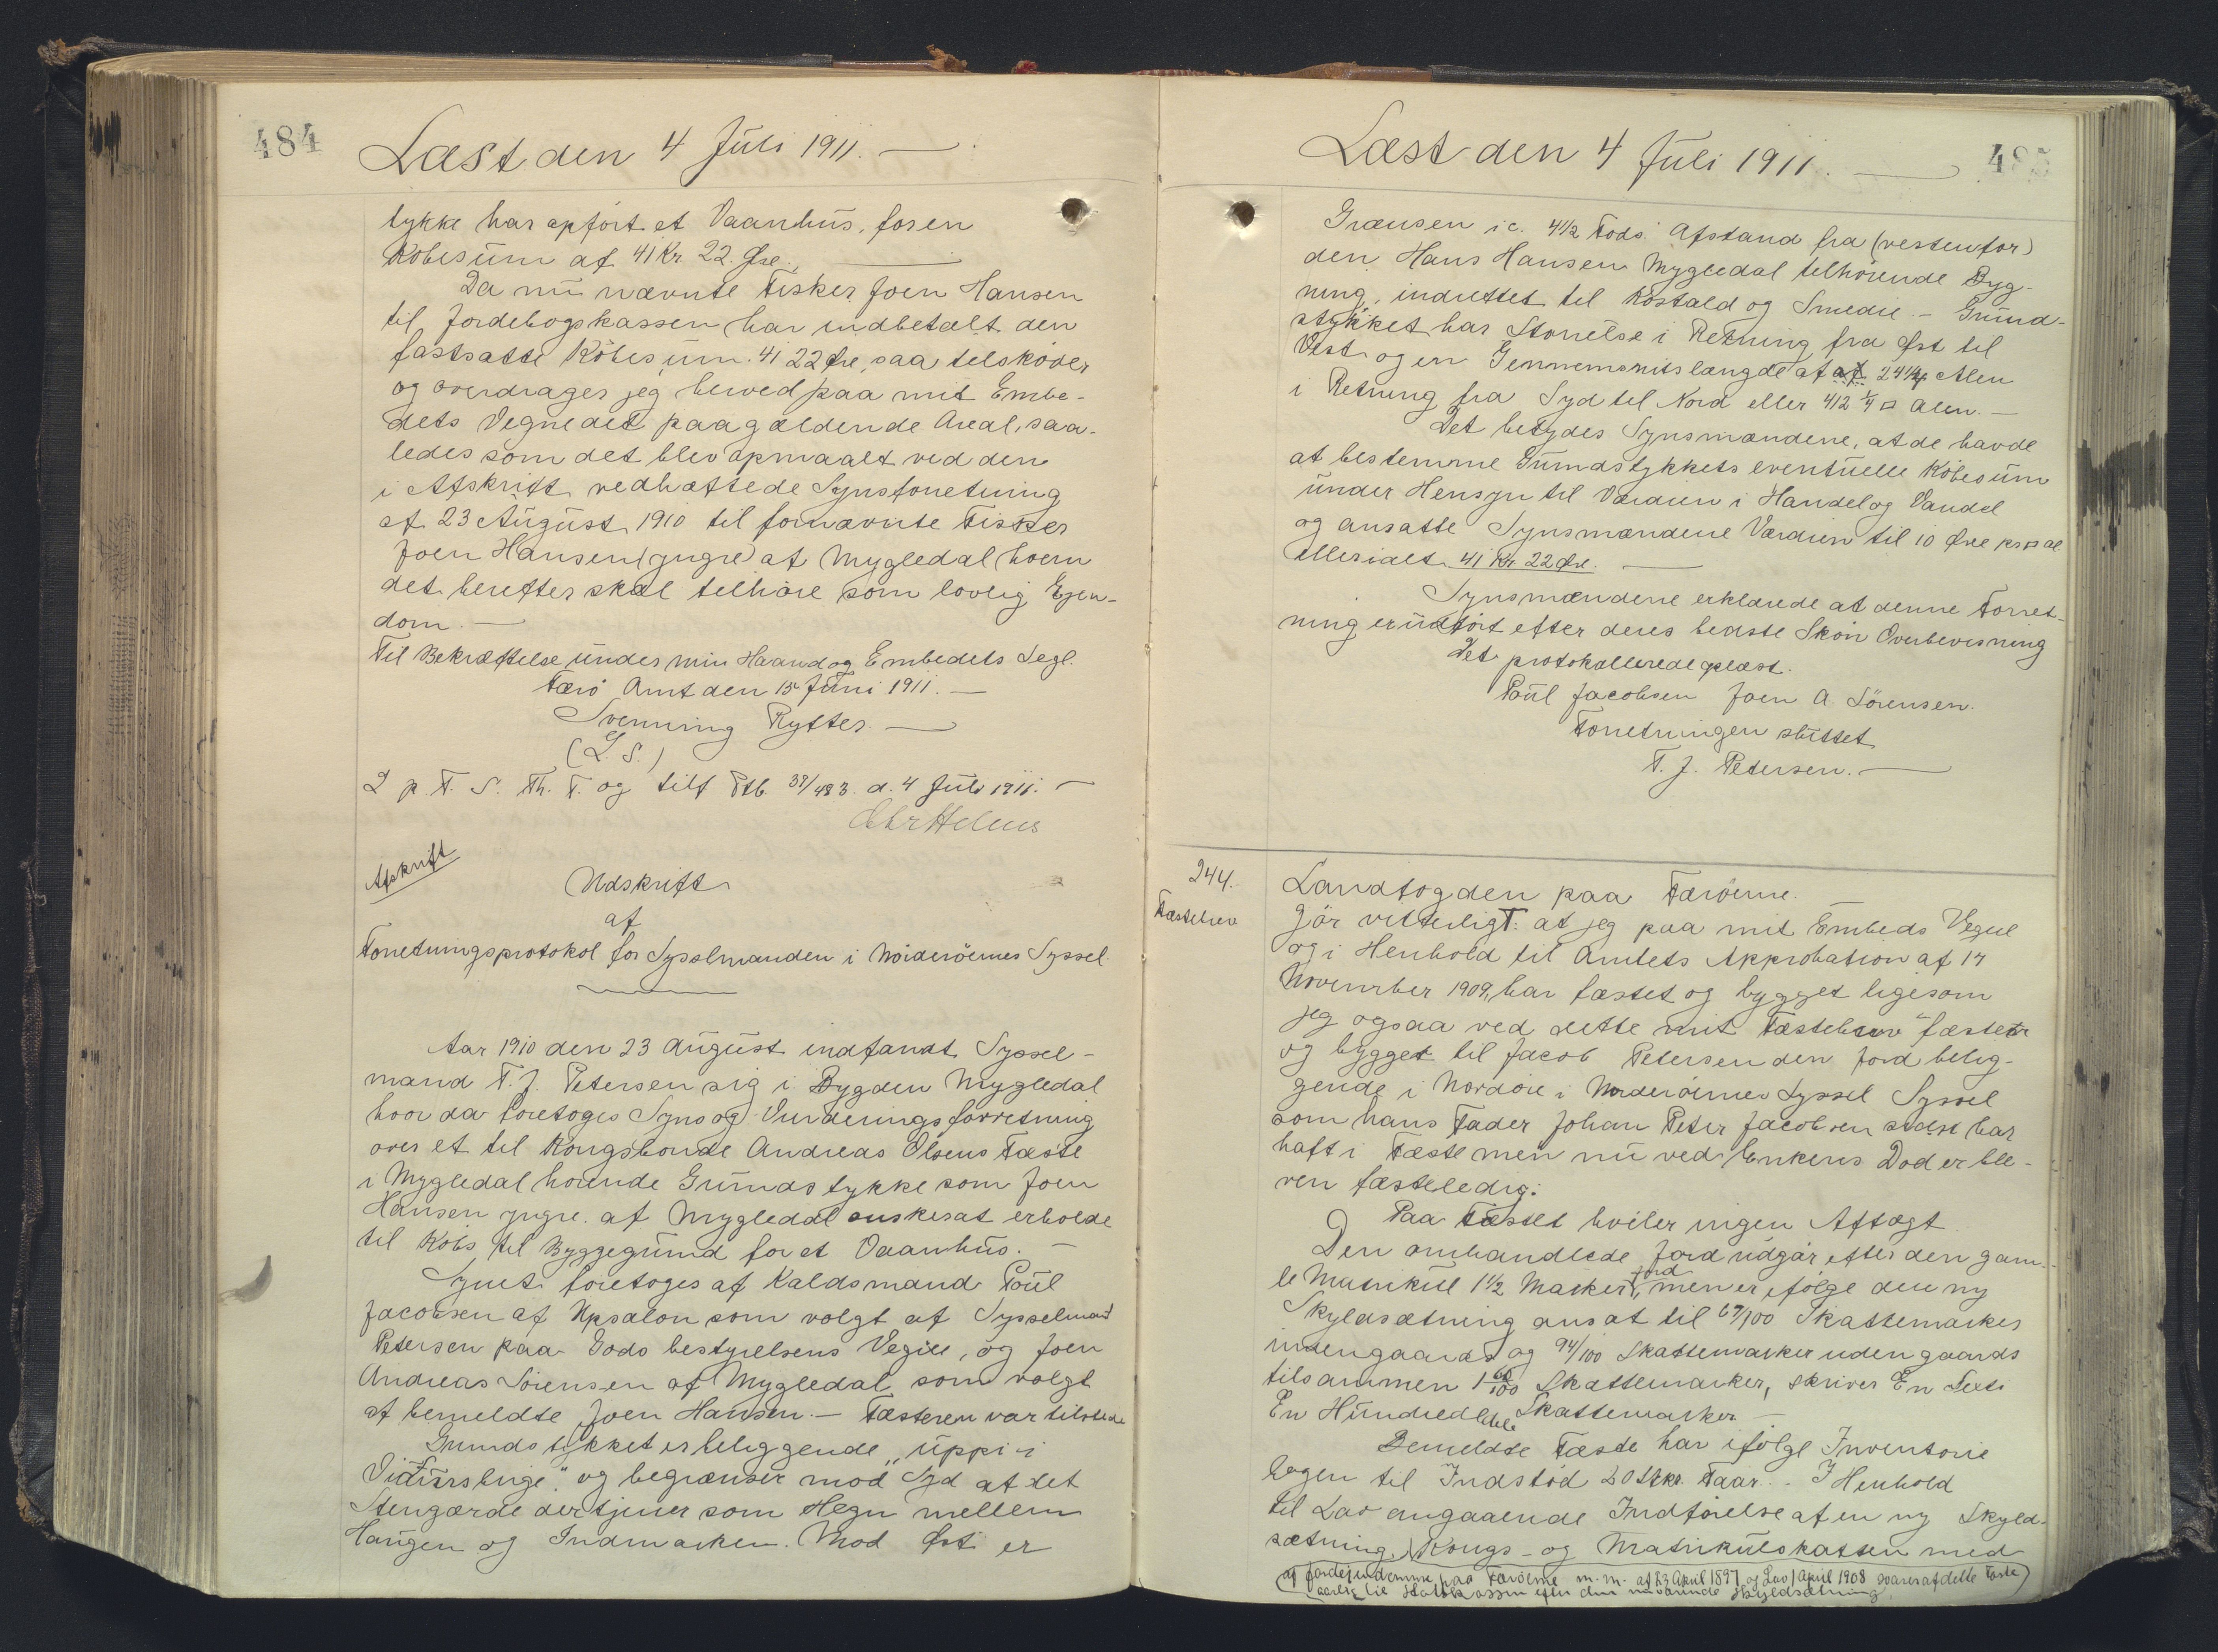 484
Læst den 4 Juli 1911. —
tykke har opført et Vaanhus, for en
Købesum af 41 Kr. 22. Øre. —
Da nu nævnte Fisker Joen Hansen
til Jordebogskassen har indbetalt den
fastsatte Købesum. 41 22 Øre, saa tilskøder
og overdrages jeg herved paa mit Embe-
dets Vegne det paagældende Areal, saa-
ledes som det blev opmaalt ved den
i Afskrift vedhæftede Synsforretning
af 23 August 1910 til fornævnte Fisker
Joen Hansen (yngre) af Mygledal hvem
det herefter skal tilhøre som lovlig Ejen-
dom. —
Til Bekræftelse under min Haand og Embedets Segl.
Færø Amt den 15 Juni 1911. —
Svenning Rytter. —
(L. S.)
L p. T. S. Th. T. og tilf Ptb. 37/483. d. 4 Juli 1911. —
Afskrift
Udskrift
af
Forretningsprotokol for Sysselmanden i Norderøernes Syssel.
Aar 1910 den 23 August indfandt Syssel-
mand T. J. Petersen sig i Bygden Mygledal
hvor da foretoges Syns og Vurderingsforretning
over et til Kongsbonde Andreas Olsens Fæste
i Mygledal hørende Grundstykke som Joen
Hansen yngre. af Mygledal ønskes at erholde
til Købs til Byggegrund for et Vaanhus. —
Synet foretoges af Kaldsmand Poul
Jacobsen af Upsalon som valgt af Sysselmand
Petersen paa Godsbestyrelsens Vegne, og Joen
Andreas Sørensen af Mygledal som valgt
af bemeldte Joen Hansen. — Fæsteren var tilstede
Grundstykket er beliggende "uppi i
Vidurslige" og begrænser mod Syd af det
Stengærde der tjener som Hegn mellem
Haugen og Indmarken. Mod Øst er
Læst den 4 Juli 1911. —
485
Grænsen i c. 4 1/2 Fods Afstand fra (vestenfor)
den Hans Hansen Mygledal tilhørende Byg-
ning, indrettet til Kostald og Smedie. — Grund-
stykket har Størrelse i Retning fra Øst til
Vest og en Gennemsnitslængde af af 24 1/4 Alen
i Retning fra Syd til Nord eller 412 1/4 □ Alen. —
Det betydes Synsmændene, at de havde
at bestemme Grundstykkets eventuelle Købesum
under Hensyn til Værdien i Handel og Vandel
og ansatte Synsmændene Værdien til 10 Øre pr □ al
eller ialt 41 Kr 22 Øre. —
Synsmændene erklærede at denne Forret-
ning er udført efter deres bedste Skøn Overbevisning
Det protokollerede oplæst.
Poul Jacobsen Joen A. Sørensen.
Forretningen sluttet
T. J. Petersen. —
244.
Fæstebrev
Landfogden paa Færøerne.
Gør vitterligt: at jeg paa mit Embeds Vegne
og i Henhold til Amtets Approbation af 17
November 1909, har fæstet og bygget ligesom
jeg ogsaa ved dette mit Fæstebrev fæster
og bygget til Jacob Petersen den Jord belig-
gende i Nordøre i Norderøernes Syssel Syssel
som hans Fader Johan Peter Jacobsen sidst har
haft i Fæste men nu ved Enkens Død er ble-
ven fæsteledig.
Paa Fæstet hviler ingen Aftægt
Den omhandlede Jord udgør efter den gam-
le Matrikul 1 1/2 Marker jord, men er ifølge den ny
Skyldsætning ansat til 67/100 Skattemarker
indengaards og 94/100 Skattemarker udengaards
tilsammen 1 60/100 Skattemarker, skriver En Sexti
En Hundreddele Skattemarker —
Bemeldte Fæste har ifølge Inventarie
bogen til Indstød 20 Stkr. Faar. — I Henhold
til Lov angaaende Indførelse af en ny Skyld-
sætning, Kongs- og Matrikulskatten med
(af Jordejendomme paa Færøerne m. m. af 23 April 1897 og Lov 1 April 1908 svares af dette Fæste)
aarlig til Statskassen efter den nuværende Skyldsætning